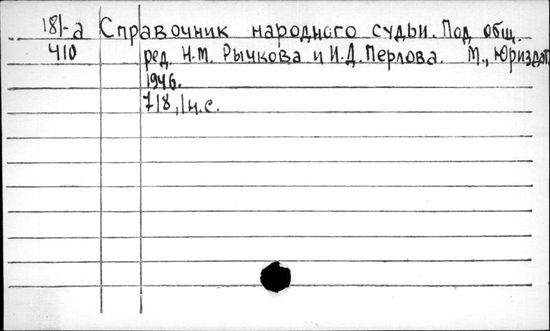 181-а Справочник народного судьи. Под общ.
410 ред. Н.М. Рычкова и И.Д. Перлова. М., Юриздат,
1946.
718, |н.с.